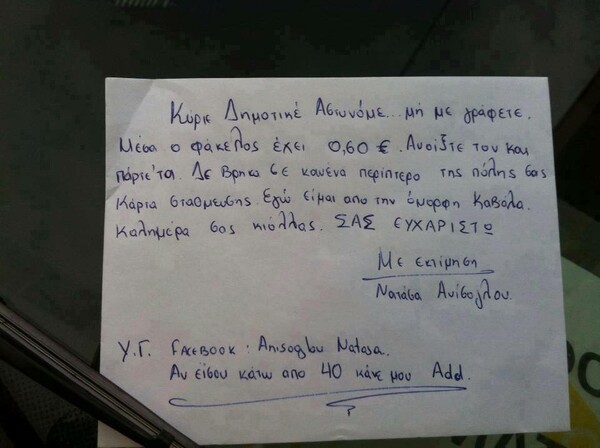 Κύριε Δημοτικέ Αστυνόμε... μή με γράφετε.
Μέσα ο φάκελος έχει 0,60 €. Ανοίξτε τον και
πάρτε'τα. Δε βρήκα σε κανένα περίπτερο της πόλης σας
κάρτα στάθμευσης. Εγώ είμαι από την όμορφη Καβάλα.
Καλημέρα σας κιόλλας. ΣΑΣ ΕΥΧΑΡΙΣΤΩ
Με εκτίμηση
Νατάσα Ανίσογλου.
Υ.Γ. FACEBOOK: Anisoglou Natasa.
Αν είσου κάτω από 40 κάνε μου Add.